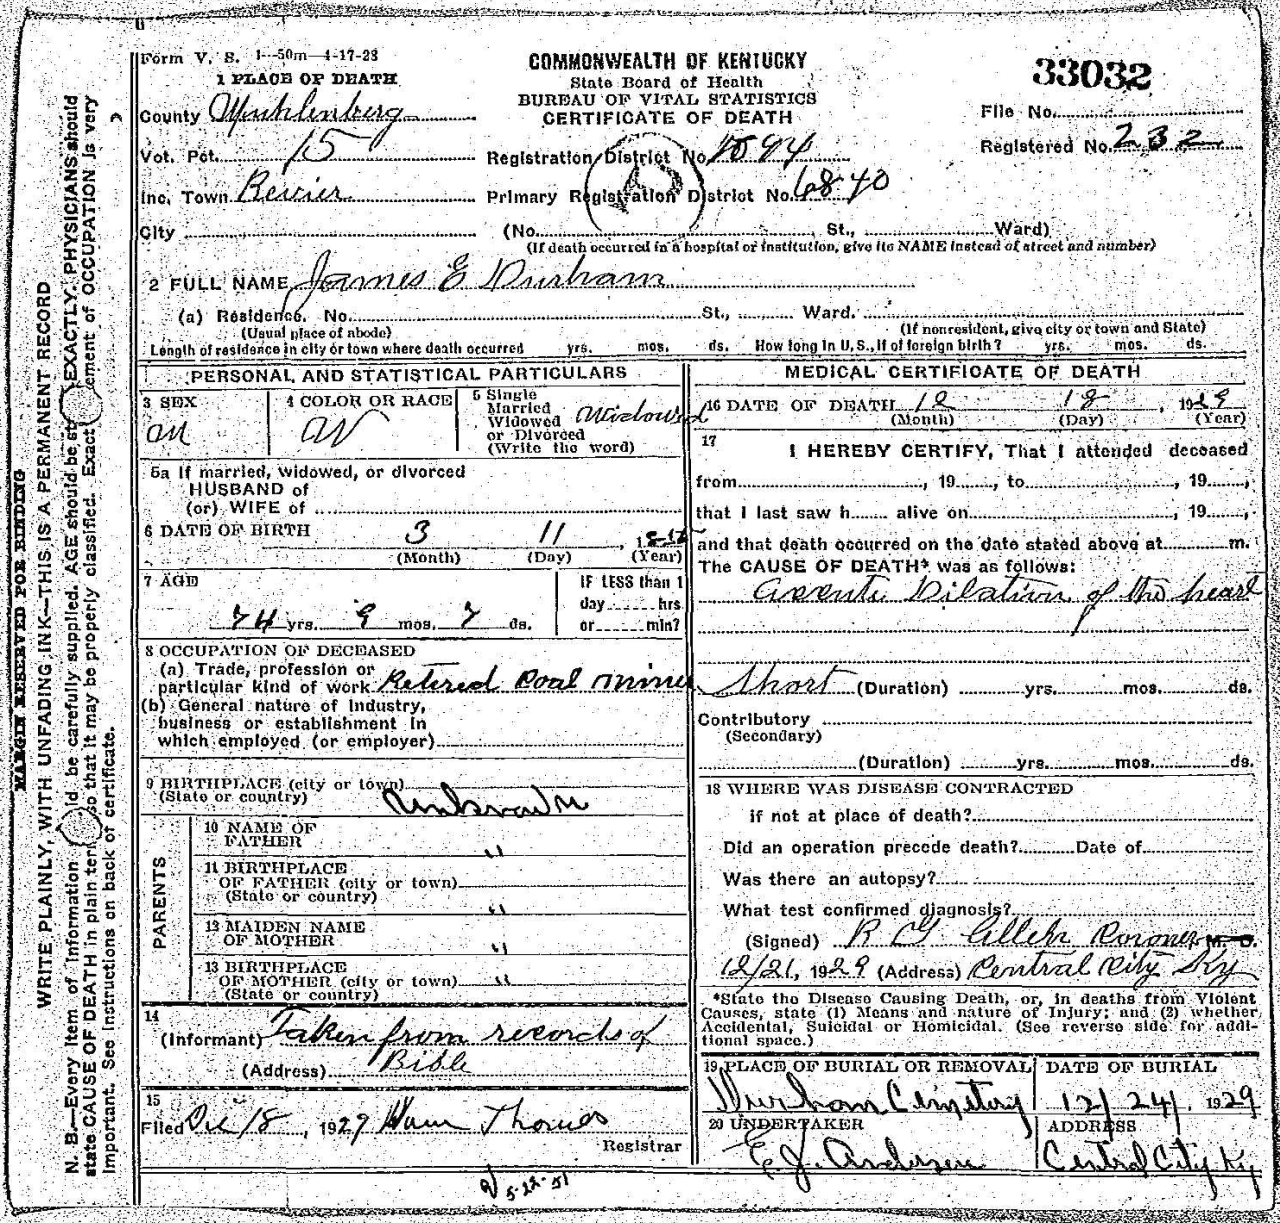 Form V. S. 1--50m-4-17-28
1 PLACE OF DEATH
County Muhlenberg
Vot. Pct. 15
Inc. Town Revier
City
COMMONWEALTH OF KENTUCKY
State Board of Health
BUREAU OF VITAL STATISTICS
CERTIFICATE OF DEATH
33032
File No.
Registered No. 232
Registration District No. 1094
Primary Registration District No. 6840
(No. St., Ward)
(If death occurred in a hospital or institution, give its NAME instead of street and number)
2 FULL NAME James E Durham
(a) Residence. No. St., Ward.
(Usual place of abode) (If nonresident, give city or town and State)
Length of residence in city or town where death occurred yrs. mos. ds. How long in U. S., if of foreign birth? yrs. mos. ds.
PERSONAL AND STATISTICAL PARTICULARS
3 SEX
M
4 COLOR OR RACE
W
5 Single
Married
Widowed
or Divorced
(Write the word)
Widowed
5a If married, widowed, or divorced
HUSBAND of
(or) WIFE of
6 DATE OF BIRTH 3 11
(Month) (Day) (Year)
7 AGE
74 yrs. 9 mos. 7 ds.
IF LESS than 1
day hrs
or min?
8 OCCUPATION OF DECEASED
(a) Trade, profession or
particular kind of work Retered Coal miner
(b) General nature of Industry,
business or establishment in
which employed (or employer)
9 BIRTHPLACE (city or town)
(State or country) Unknown
PARENTS
10 NAME OF
FATHER "
11 BIRTHPLACE
OF FATHER (city or town)
(State or country) "
12 MAIDEN NAME
OF MOTHER "
13 BIRTHPLACE
OF MOTHER (city or town) "
(State or country)
14
(Informant) Taken from records of
(Address) Bible
15
Filed Dec 18, 1929 Thomas
Registrar
5-22-51
MEDICAL CERTIFICATE OF DEATH
16 DATE OF DEATH 12 18, 1929
(Month) (Day) (Year)
17
I HEREBY CERTIFY, That I attended deceased
from, 19, to, 19,
that I last saw h alive on, 19,
and that death occurred on the date stated above at m.
The CAUSE OF DEATH* was as follows:
Dilation of the heart
Short (Duration) yrs. mos. ds.
Contributory
(Secondary)
(Duration) yrs. mos. ds.
18 WHERE WAS DISEASE CONTRACTED
if not at place of death?
Did an operation precede death? Date of
Was there an autopsy?
What test confirmed diagnosis?
(Signed) R Coroner M. D.
12/21, 1929 (Address) Central City Ky
*State the Disease Causing Death, or, in deaths from Violent
Causes, state (1) Means and nature of Injury; and (2) whether
Accidental, Suicidal or Homicidal. (See reverse side for addi-
tional space.)
19 PLACE OF BURIAL OR REMOVAL
Durham Cemetery
DATE OF BURIAL
12/24/1929
20 UNDERTAKER
E. J. Anderson
ADDRESS
Central City Ky
MARGIN RESERVED FOR BINDING
WRITE PLAINLY, WITH UNFADING INK—THIS IS A PERMANENT RECORD
N. B.—Every item of information should be carefully supplied. AGE should be stated EXACTLY. PHYSICIANS should
state CAUSE OF DEATH in plain terms, so that it may be properly classified. Exact statement of OCCUPATION is very
important. See instructions on back of certificate.